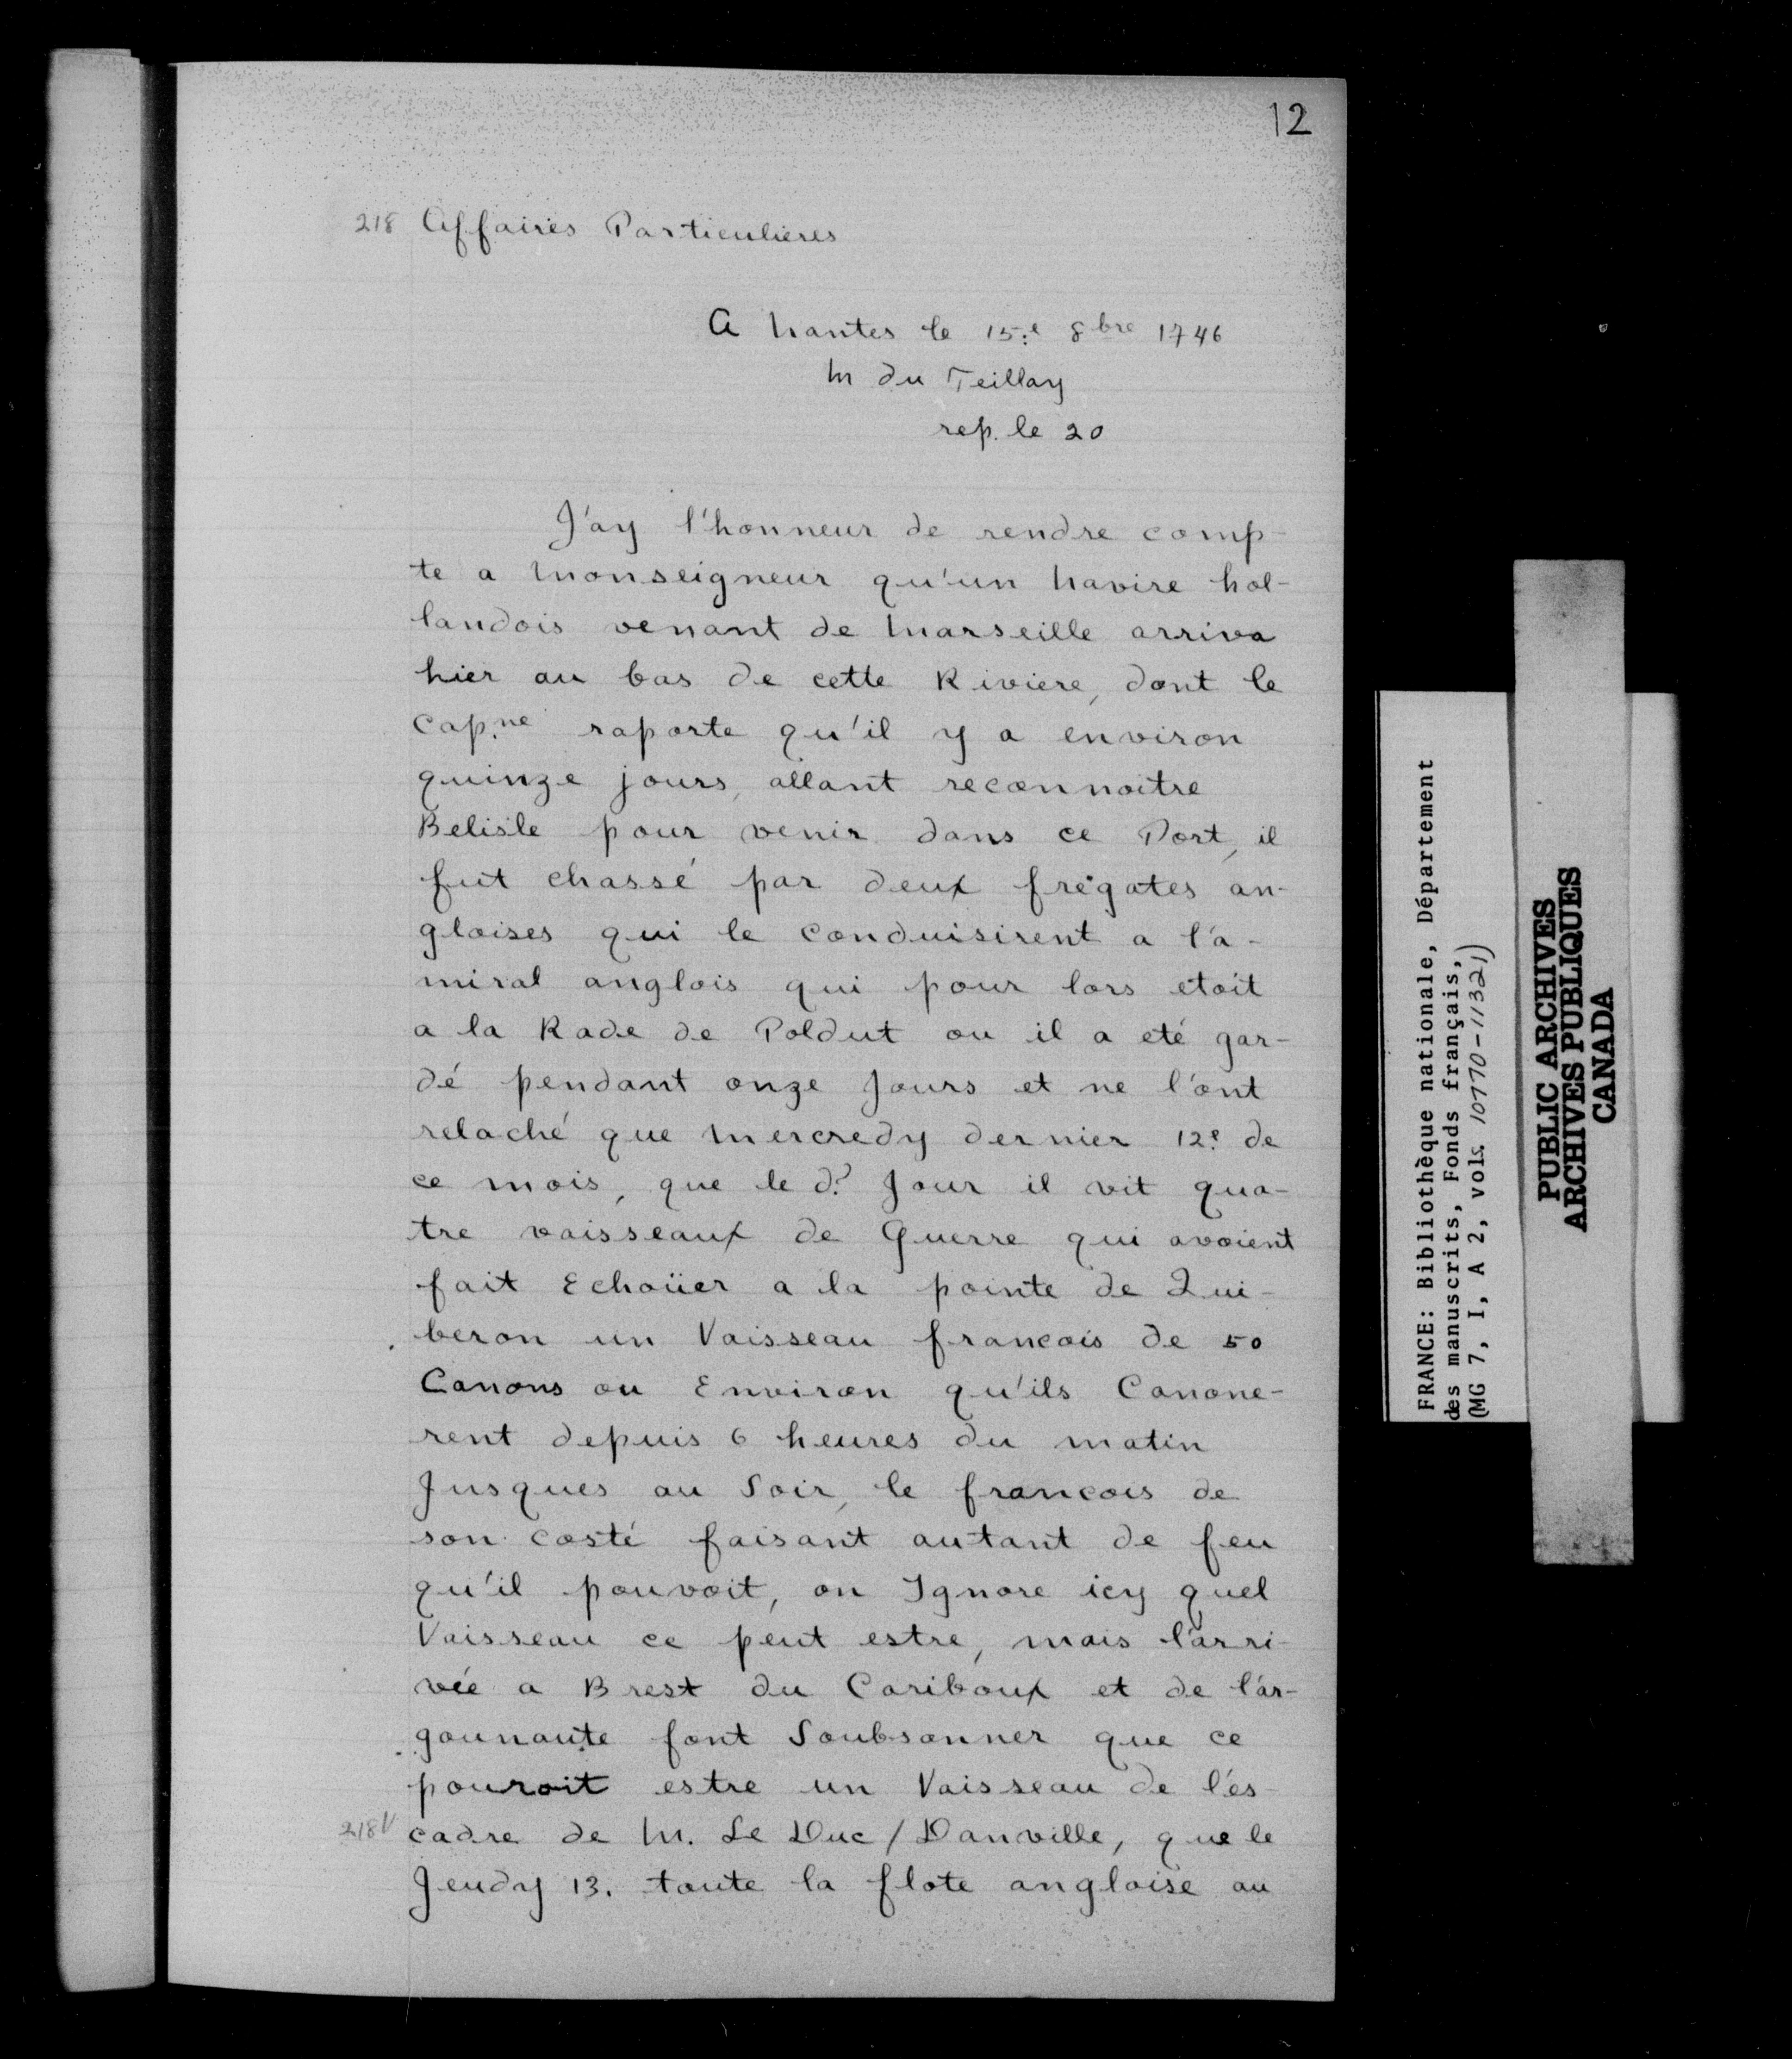 12
218 Affaires Particulieres
A Nantes le 15.e 8bre 1746
M du Teillay
rep. le 20
J'ay l'honneur de rendre comp-
te a Monseigneur qu'un Navire hol-
landois venant de Marseille arriva
hier au bas de cette Riviere, dont le
Cap.ne raporte qu'il y a environ
quinze jours, allant reconnoitre
Belisle pour venir dans ce Port, il
fut chassé par deux frégates an-
gloises qui le conduisirent a l'a-
miral anglois qui pour lors etoit
a la Rade de Poldut ou il a eté gar-
dé pendant onze Jours et ne l'ont
relaché que Mercredy dernier 12e de
ce mois, que le d? Jour il vit qua-
tre vaisseaux de Guerre qui avoient
fait Echoüer a la pointe de Qui-
beron un Vaisseau francois de 50
Canons ou Environ qu'ils Canone-
rent depuis 6 heures du matin
Jusques au Soir, le francois de
son costé faisant autant de feu
qu'il pouvoit, on Ignore icy quel
Vaisseau ce peut estre, mais l'arri-
vée a Brest du Cariboux et de l'ar-
gounaute font Soubsonner que ce
pouroit estre un Vaisseau de l'es-
218V cadre de M. Le Duc / Danville, que le
Jeudy 13. toute la flote angloise au
FRANCE: Bibliothèque nationale, Département
des manuscrits, Fonds français,
(MG 7, I, A 2, vols. 10770-11321)
PUBLIC ARCHIVES
ARCHIVES PUBLIQUES
CANADA